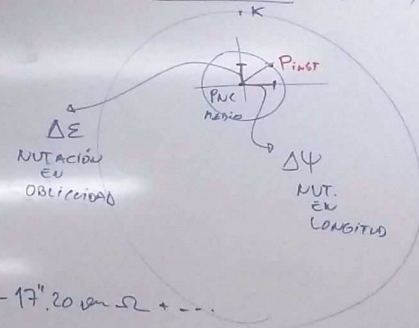 K
PINST
PNC
MEDIO
Δε
NUTACIÓN
EN
OBLICUIDAD
Δψ
NUT.
EN
LONGITUD
- 17".20 sen Ω + ---